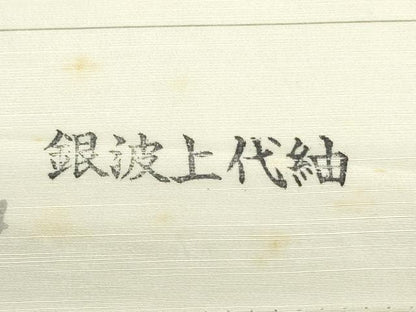 銀波上代紬